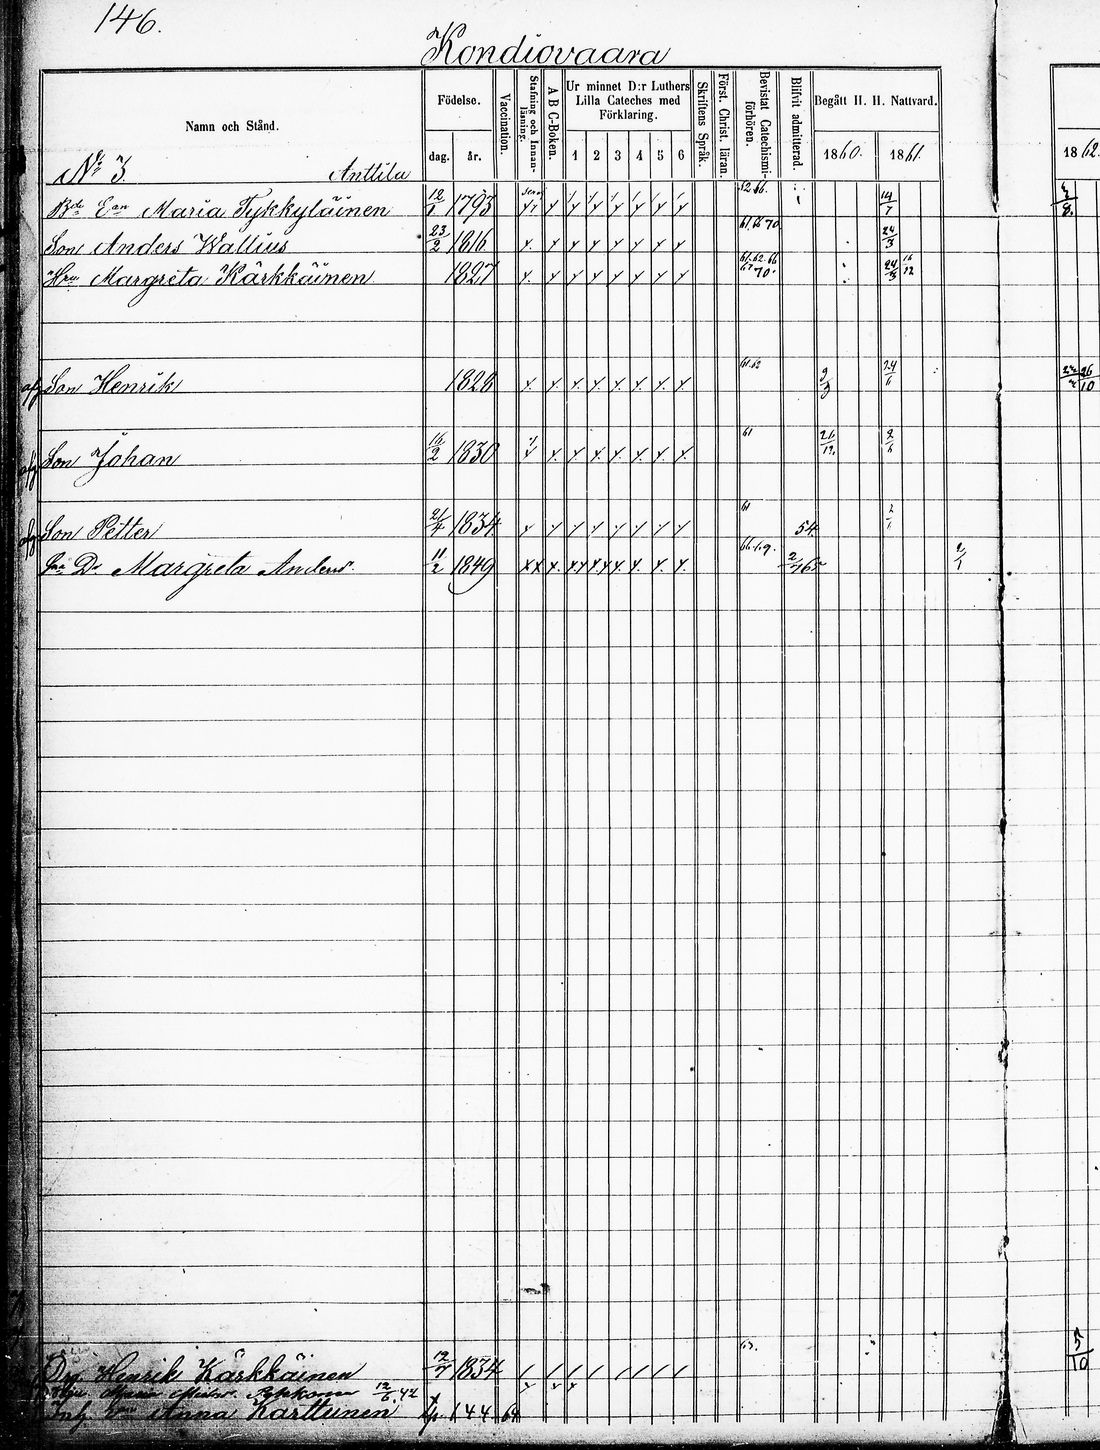 146.
Kondiovaara
Namn och Stånd.
Födelse.
dag. år.
Vaccination.
Stafning och Innanläsning.
A B C-Boken.
Ur minnet D:r Luthers Lilla Cateches med Förklaring.
1 2 3 4 5 6
Skriftens Språk.
Först. Christ. läran.
Bevistat Catechismiförhören.
Blifvit admitterad.
Begått H. H. Nattvard.
1860. 1861. 1862.
No 3. Anttila
Maria Tykkyläinen 1793 52 66. 14/7
Son Anders Wallius 23/2 1816 61 66 70 24/3
Hru Margreta Kärkkäinen 1827 61. 62. 66 67 70. 24/3 16/12
Son Henrik 1826 61 62 24/6
Son Johan 16/2 1830 61
Son Petter 21/4 1834 61 54.
Dr Margreta Anders. 11/2 1849 66. 69. 2/7 65
Henrik Kärkkäinen 12/7 1834 63. 5/10
Maria 12/6. 42
Inh. Anna Karttunen 44 64